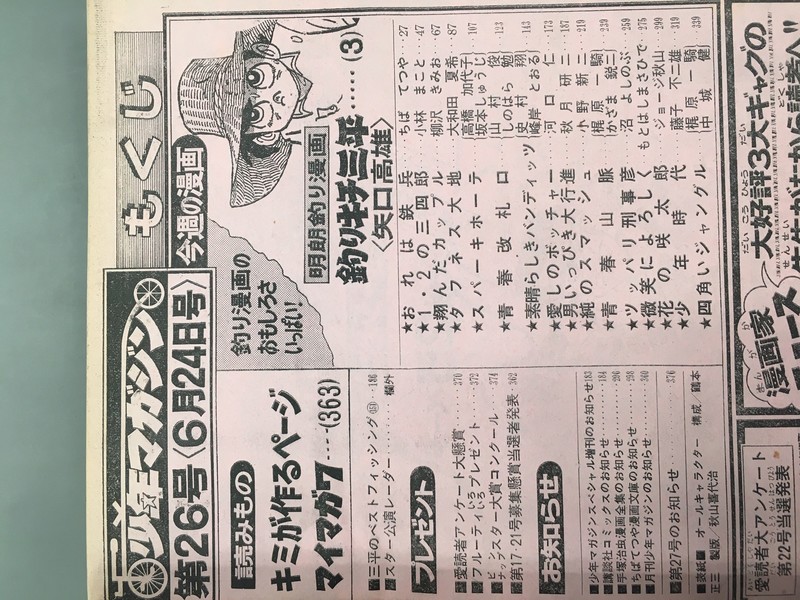 もくじ
少年マガジン
第26号〈6月24日号〉
今週の漫画
釣り漫画の
おもしろさ
いっぱい!
明朗釣り漫画
釣りキチ三平……(3)
〈矢口高雄〉
★おれは鉄兵 ちばてつや…27
★1・2の三四郎 小林まこと…47
★翔んだカップル 柳沢きみお…67
★タフネス大地 大和田夏希…87
★スパーキホーテ 高橋加代子 坂本しゅうじ…107
★青春改札口 山村俊勉 しのはら…123
★素晴らしきバンディッツ 史村翔 峰岸とおる…143
★愛しのボッチャー 河口仁…173
★男いっぴき大行進 秋月研二…187
★純のスマッシュ 小野新二…219
★青春山脈 梶原一騎 かざま鋭二…239
★ツッパリ刑事彦 沼よしのぶ…259
★微笑によろしく もとはしまさひで…275
★花の咲太郎 ジョージ秋山…299
★少年時代 藤子不二雄…319
★四角いジャングル 梶原一騎 中城健…339
読みもの
キミが作るページ
マイマガワ…(363)
■三平のベストフィッシング…186
■スター公演レーダー………欄外
プレゼント
■愛読者アンケート大懸賞…370
■フルーティいろいろプレゼント…372
■ピンナップスター大賞コンクール…374
■第17・21号募集懸賞当選者発表…362
お知らせ
■少年マガジンスペシャル増刊のお知らせ183
■講談社コミックスのお知らせ…184
■手塚治虫漫画全集のお知らせ…296
■ちばてつや漫画文庫のお知らせ…298
■月刊少年マガジンのお知らせ…340
■第27号のお知らせ…376
■表紙■ オールキャラクター 構成/鏑本
正三 製版 秋山喜代治
大好評3大ギャグの
漫画家
愛読者大アンケート
第22号当選発表